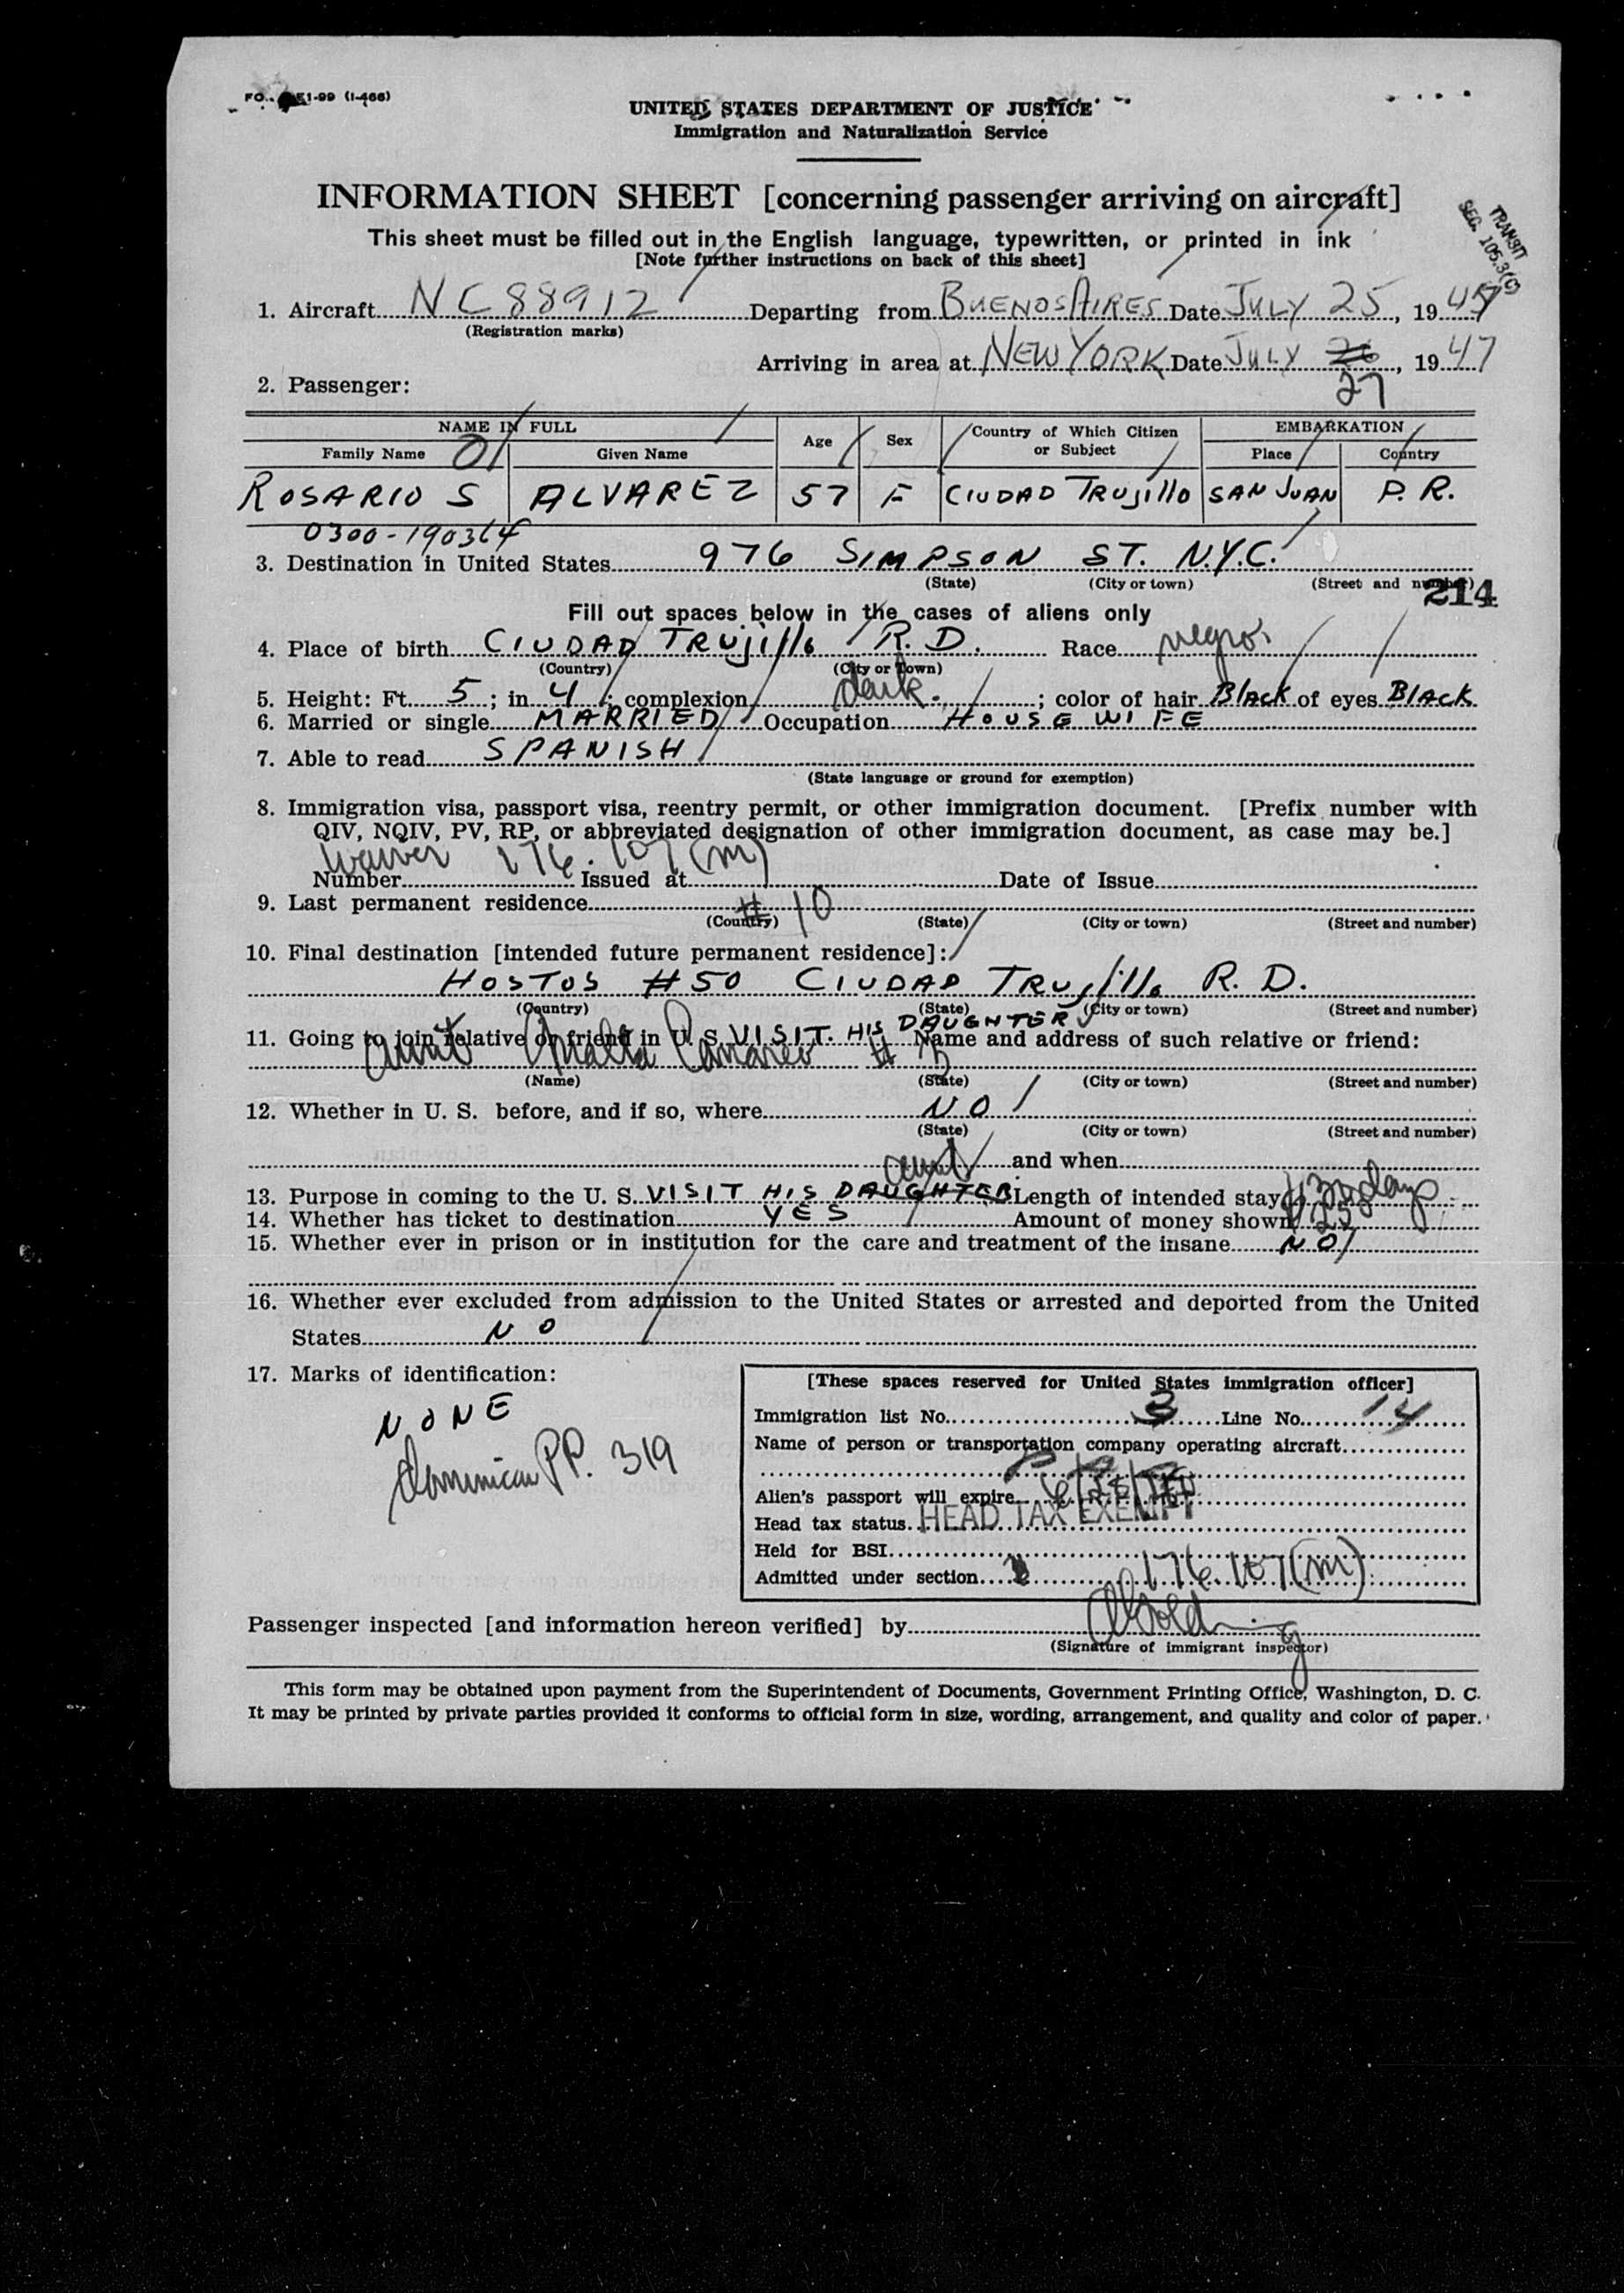 UNITED STATES DEPARTMENT OF JUSTICE
Immigration and Naturalization Service
INFORMATION SHEET [concerning passenger arriving on aircraft]
This sheet must be filled out in the English language, typewritten, or printed in ink
[Note further instructions on back of this sheet]
TRANSIT
SEC. 105.3(C)
1. Aircraft NC88912 Departing from BUENOS AIRES Date JULY 25, 1947
(Registration marks)
Arriving in area at NEW YORK Date JULY 26, 1947
27
2. Passenger:
NAME IN FULL Age Sex Country of Which Citizen or Subject EMBARKATION
Family Name Given Name Place Country
ROSARIO S ALVAREZ 57 F CIUDAD TRUJIllO SAN JUAN P. R.
0300-190364
3. Destination in United States 976 SIMPSON ST. N.Y.C.
(State) (City or town) (Street and number)
214
Fill out spaces below in the cases of aliens only
4. Place of birth CIUDAD TRUJIllo R. D. Race negro.
(Country) (City or Town)
5. Height: Ft. 5; in 4; complexion dark.; color of hair BlAcK of eyes BlAcK
6. Married or single MARRIED Occupation HOUSE WIFE
7. Able to read SPANISH
(State language or ground for exemption)
8. Immigration visa, passport visa, reentry permit, or other immigration document. [Prefix number with
QIV, NQIV, PV, RP, or abbreviated designation of other immigration document, as case may be.]
Waiver 176.107(m)
Number Issued at Date of Issue
9. Last permanent residence # 10
(Country) (State) (City or town) (Street and number)
10. Final destination [intended future permanent residence]:
HOSTOS #50 CIUDAD TRUJillo R. D.
(Country) (State) (City or town) (Street and number)
11. Going to join relative or friend in U. S. VISIT HIS DAUGHTER Name and address of such relative or friend:
aunt # 3
(Name) (State) (City or town) (Street and number)
12. Whether in U. S. before, and if so, where NO
(State) (City or town) (Street and number)
aunt and when
13. Purpose in coming to the U. S. VISIT HIS DAUGHTER Length of intended stay 30 days
14. Whether has ticket to destination YES Amount of money shown 25
15. Whether ever in prison or in institution for the care and treatment of the insane NO
16. Whether ever excluded from admission to the United States or arrested and deported from the United
States NO
17. Marks of identification:
NONE
Dominican PP. 319
[These spaces reserved for United States immigration officer]
Immigration list No. 3 Line No. 14
Name of person or transportation company operating aircraft
Alien's passport will expire
Head tax status HEAD TAX EXEMPT
Held for BSI
Admitted under section 176.107(m)
Passenger inspected [and information hereon verified] by
(Signature of immigrant inspector)
This form may be obtained upon payment from the Superintendent of Documents, Government Printing Office, Washington, D. C.
It may be printed by private parties provided it conforms to official form in size, wording, arrangement, and quality and color of paper.